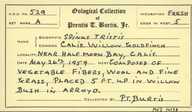 N.O. 529
SET MARK A
Oological Collection
of
Prentis T. Burtis, Jr.
INCUBATION FRESH
EGGS IN SET 5
SPECIES SPINUS TRISTIS
NAME CALIF. WILLOW GOLDFINCH
LOCALITY NEAR HALF MOON BAY, CALIF.
DATE MAY 26TH, 1959 NEST COMPOSED OF
VEGETABLE FIBERS, WOOL AND FINE
GRASS, PLACED 5 FT. UP IN WILLOW
BUSH IN ARROYO.
COLLECTED BY P.T. BURTIS